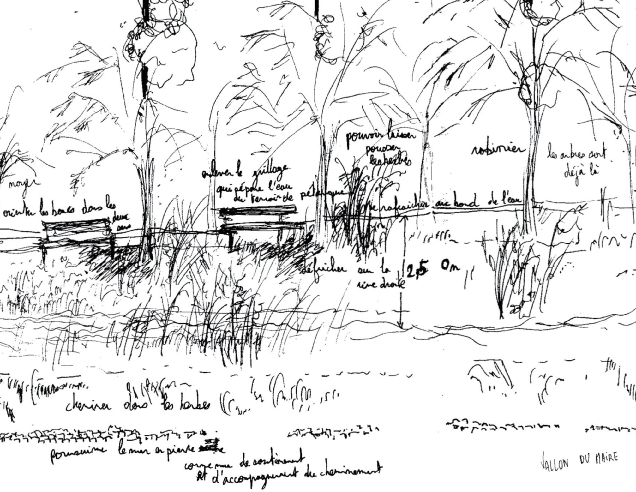 pouvoir laisser
pousser
les herbes
robinier
les arbres sont
déjà là
enlever le grillage
qui sépare l'eau
du terrain de pétanque
noyer
orienter les bancs dans les
deux
sens
se rafraîchir au bord de l'eau
défricher sur la
rive droite
2,50m
cheminer dans les herbes
poursuivre le mur en pierre
comme mur de soutènement
et d'accompagnement du cheminement
VALLON DU MAIRE